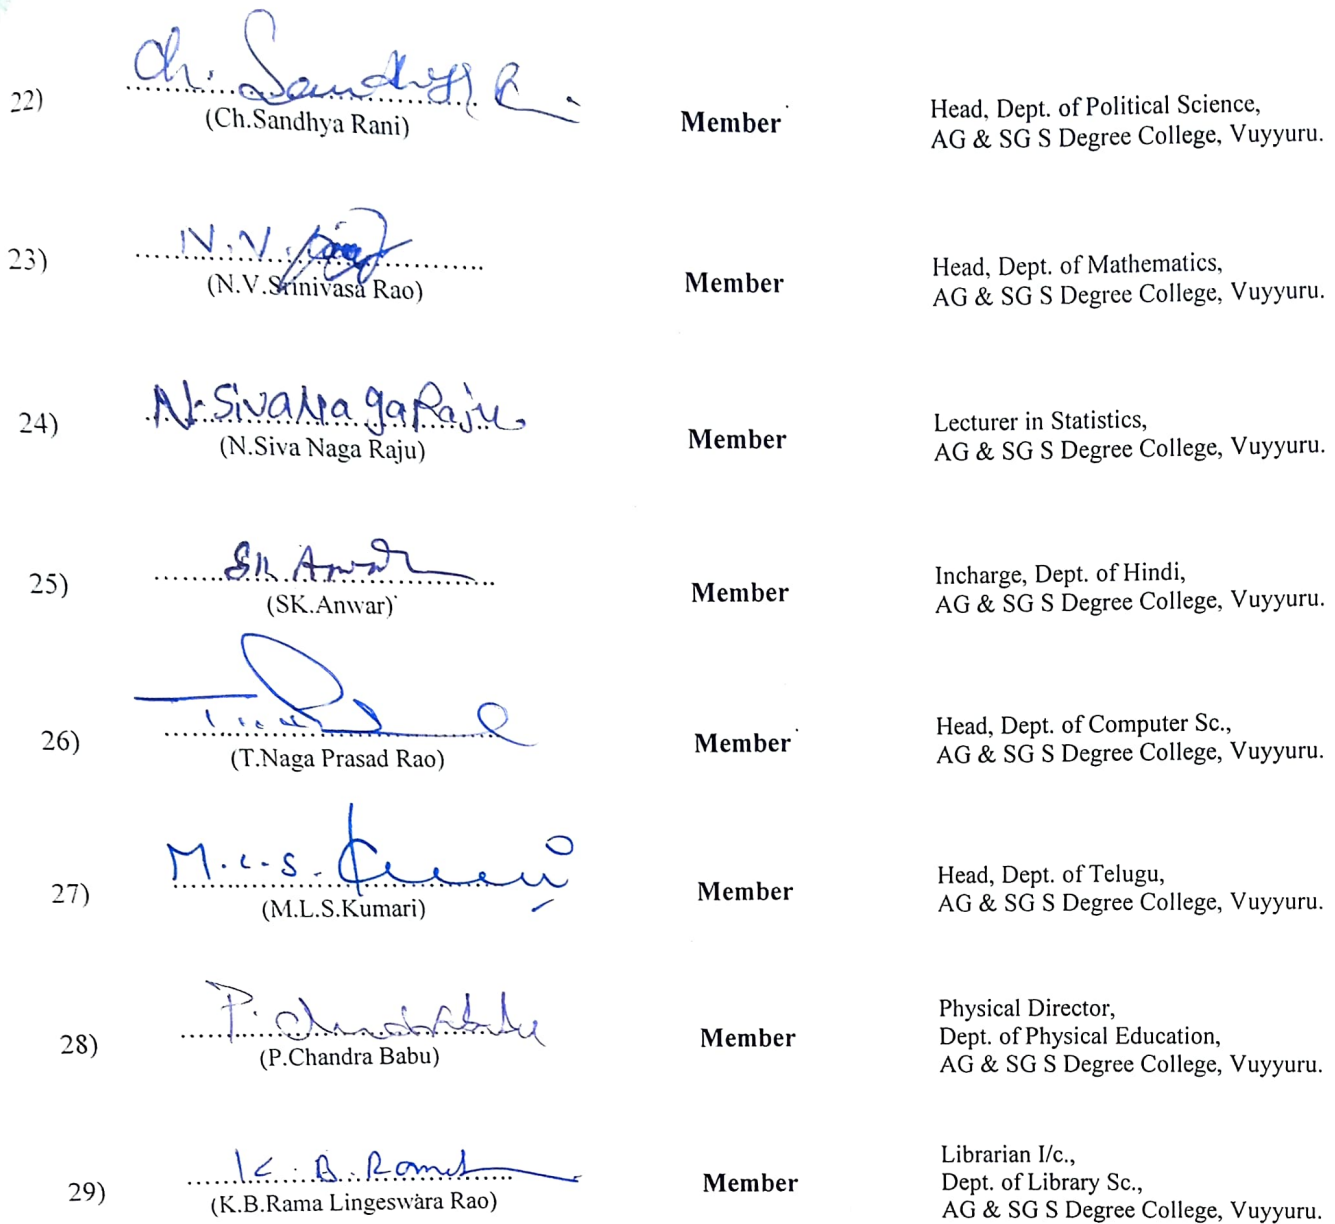 Ch. Sandhya R.
22) (Ch.Sandhya Rani) Member Head, Dept. of Political Science,
AG & SG S Degree College, Vuyyuru.
N.V.
23) (N.V.Srinivasa Rao) Member Head, Dept. of Mathematics,
AG & SG S Degree College, Vuyyuru.
N. Siva Naga Raju
24) (N.Siva Naga Raju) Member Lecturer in Statistics,
AG & SG S Degree College, Vuyyuru.
SK Anwar
25) (SK.Anwar) Member Incharge, Dept. of Hindi,
AG & SG S Degree College, Vuyyuru.
26) (T.Naga Prasad Rao) Member Head, Dept. of Computer Sc.,
AG & SG S Degree College, Vuyyuru.
M.L.S. Kumari
27) (M.L.S.Kumari) Member Head, Dept. of Telugu,
AG & SG S Degree College, Vuyyuru.
P. Chandra Babu
28) (P.Chandra Babu) Member Physical Director,
Dept. of Physical Education,
AG & SG S Degree College, Vuyyuru.
K. B. Rama
29) (K.B.Rama Lingeswara Rao) Member Librarian I/c.,
Dept. of Library Sc.,
AG & SG S Degree College, Vuyyuru.